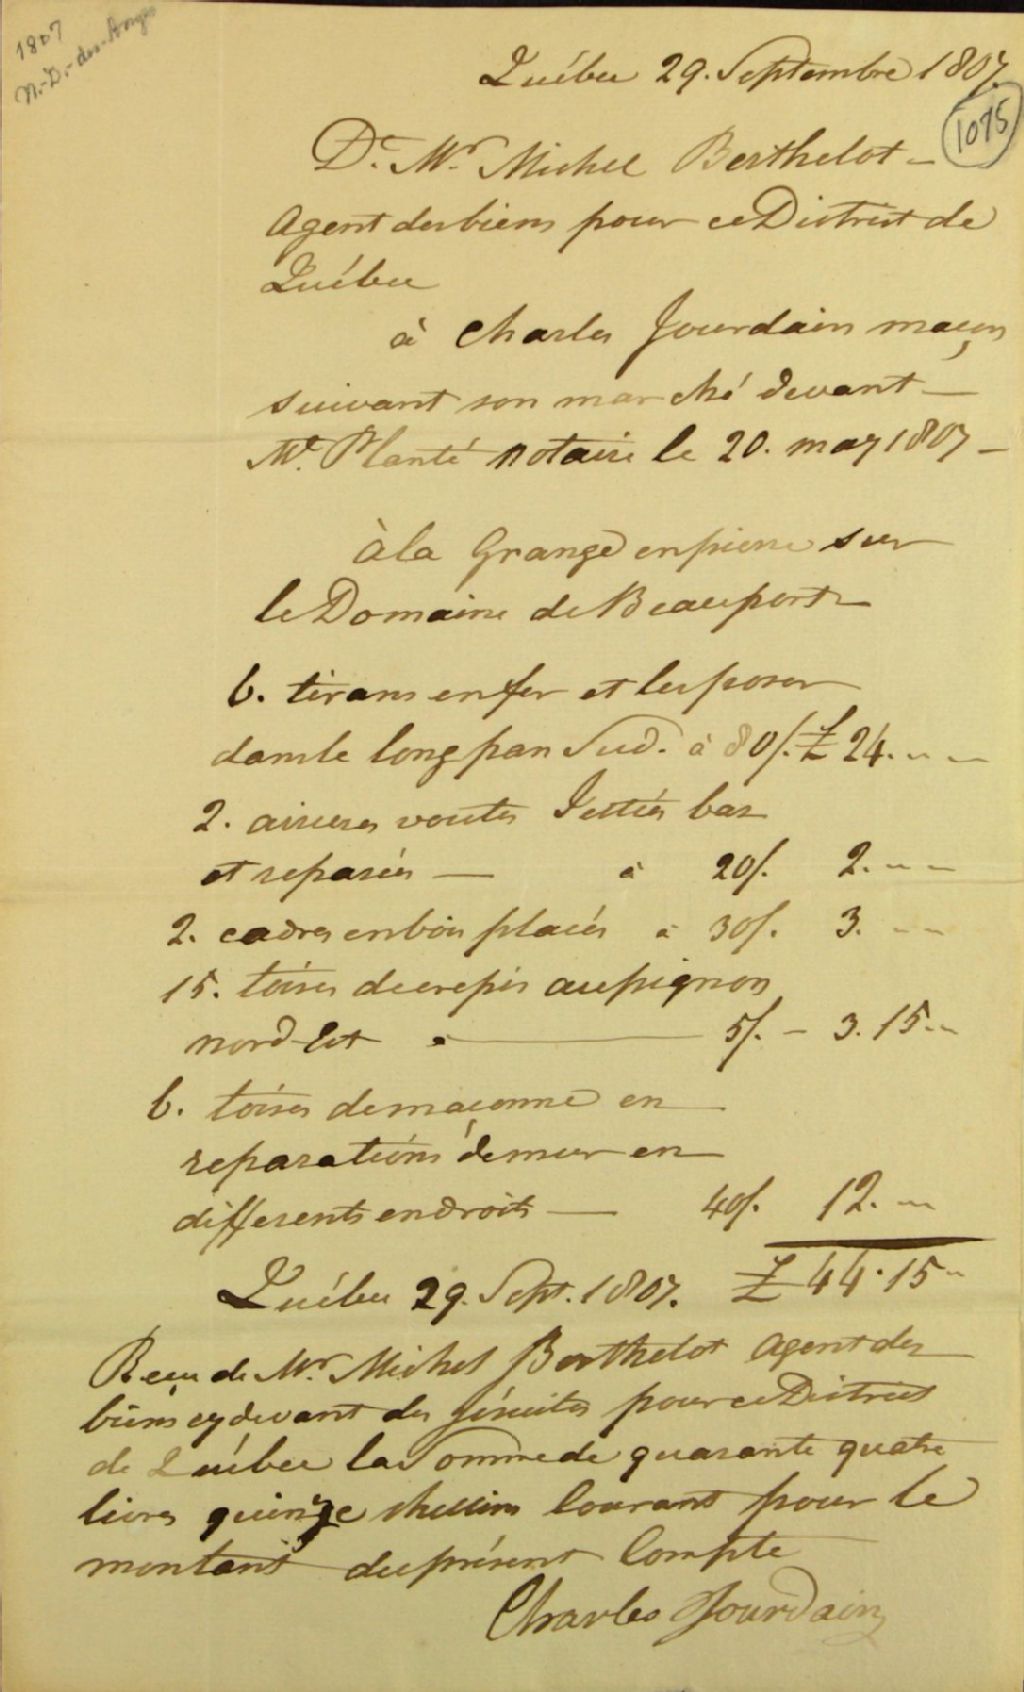 1807
N.-D.-des-Anges
Québec 29. Septembre 1807.
1075
Dr. Mr. Michel Berthelot –
Agent des biens pour ce District de
Québec
à Charles Jourdain maçon
suivant son marché devant –
Mr. Planté notaire le 20. may 1807 –
à la Grange en pierre sur
le Domaine de Beauport
6. tirans en fer et les poser
dans le long pan Sud. à 80/. £ 24. " "
2. voutes bas
et reparés — à 20/. 2. " "
2. cadres en bois placés à 30/. 3. " "
15. toises de crepis au pignon
nord Est à — 5/. – 3. 15 "
6. toises de maçonne en
reparations de mur en
differents endroits — 40/. 12. " "
Québec 29. Sept. 1807. £ 44. 15 "
Reçu de Mr. Michel Berthelot Agent des
biens cy devant des Jésuites pour ce District
de Québec la Somme de quarante quatre
livres quinze shellins Courant pour le
montant du présent Compte
Charles Jourdain